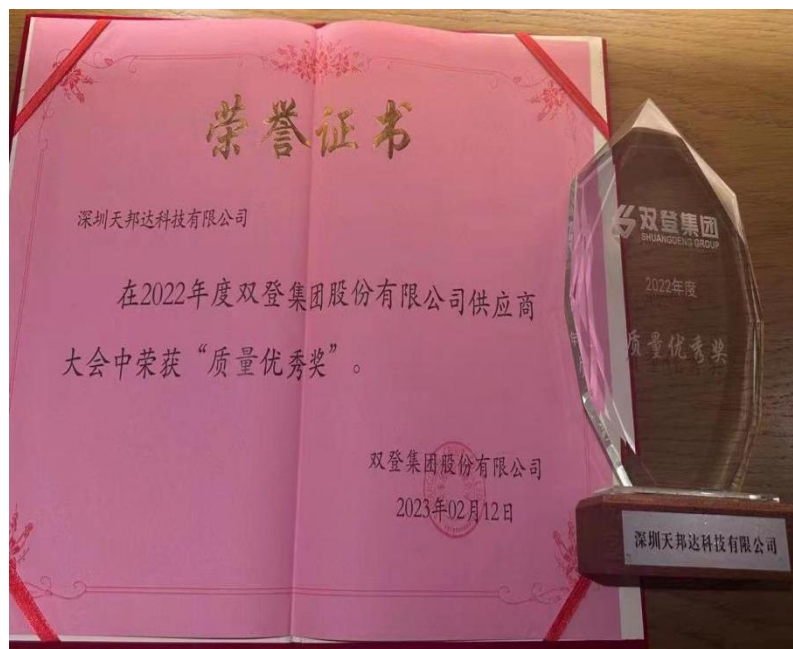 荣誉证书
深圳天邦达科技有限公司
在2022年度双登集团股份有限公司供应商
大会中荣获“质量优秀奖”。
双登集团股份有限公司
2023年02月12日
双登集团
SHUANGDENG GROUP
2022年度
质量优秀奖
深圳天邦达科技有限公司